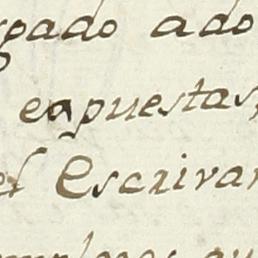 rgado ado
expuestas,
el Escrivan